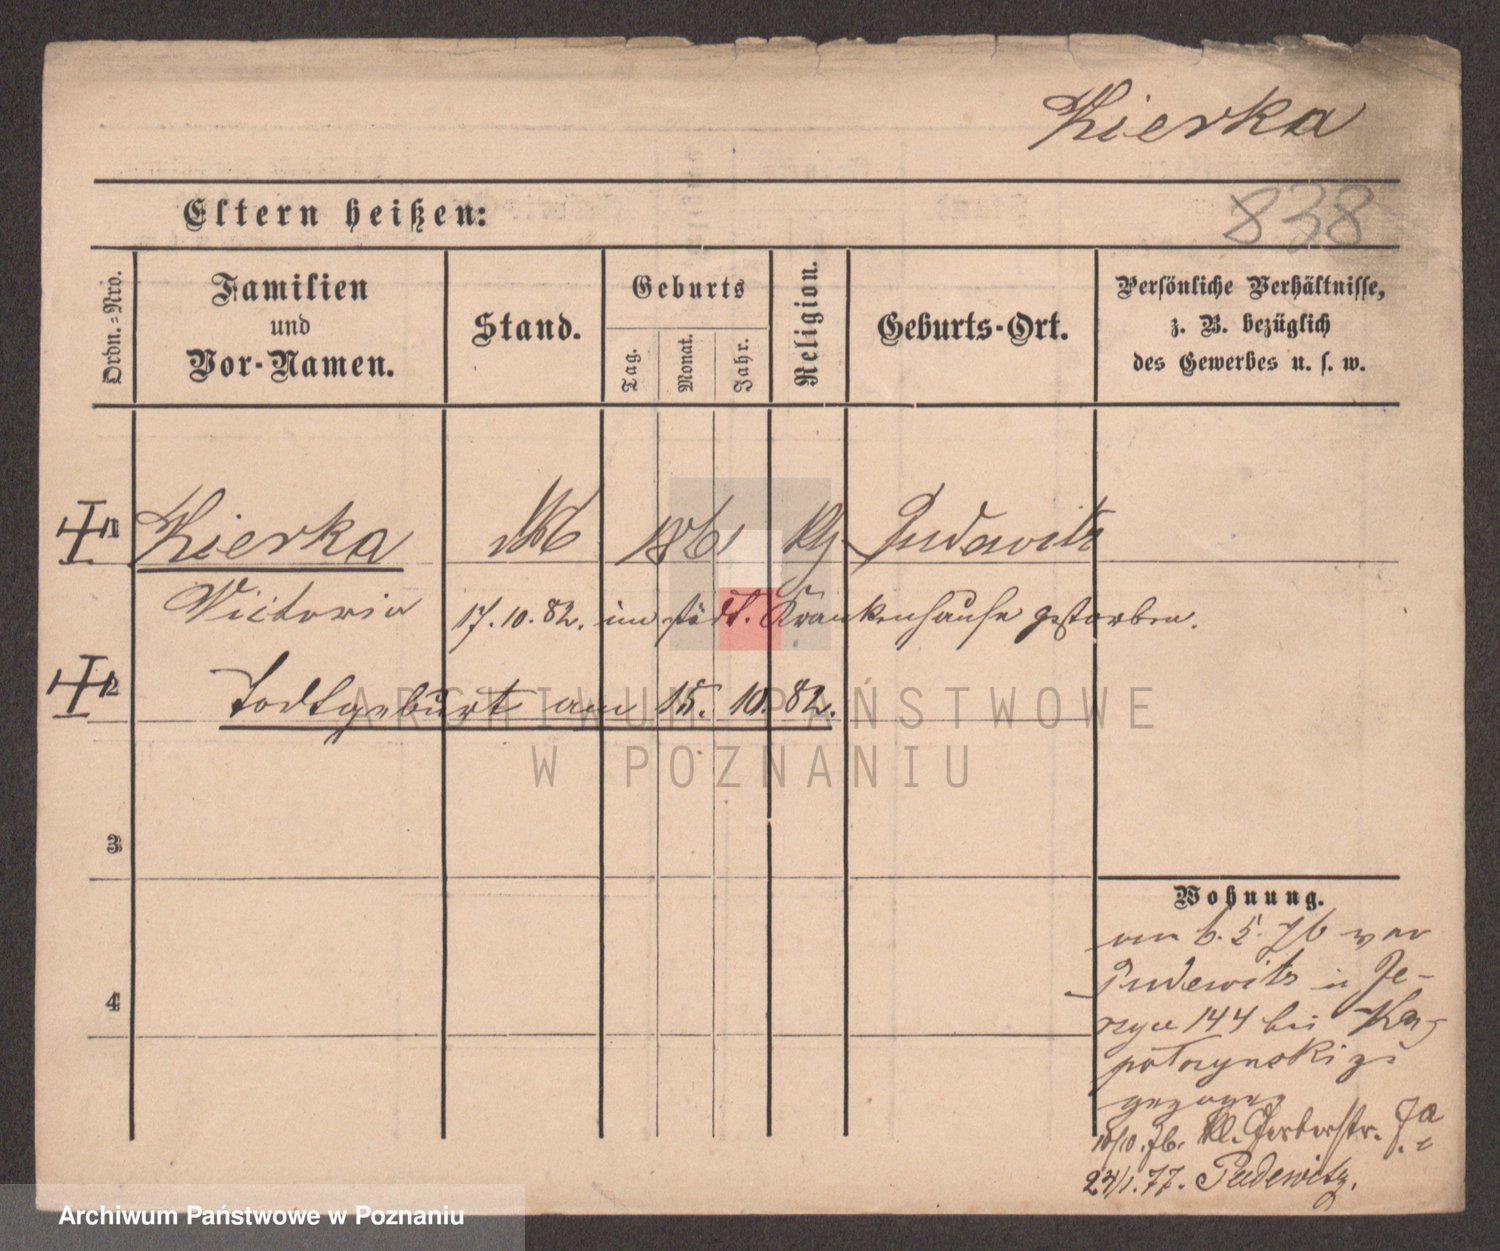 Kierka
838
Eltern heißen:
Ordn.-Nro.
Familien
und
Vor-Namen.
Stand.
Geburts
Tag.
Monat.
Jahr.
Religion.
Geburts-Ort.
Persönliche Verhältnisse,
z. B. bezüglich
des Gewerbes u. s. w.
1 Kierka 186 Pudewitz
Victoria 17. 10. 82. im städt. Krankenhause gestorben.
2 Todtgeburt am 15. 10. 82.
3
4
Wohnung.
am 6. 5. 76 von
Pudewitz in Je-
rzyce 144 bei
zu
gezogen
10/10. 76. kl. Gerberstr. 7a
24/1. 77. Pudewitz.
ARCHIWUM PAŃSTWOWE
W POZNANIU
Archiwum Państwowe w Poznaniu